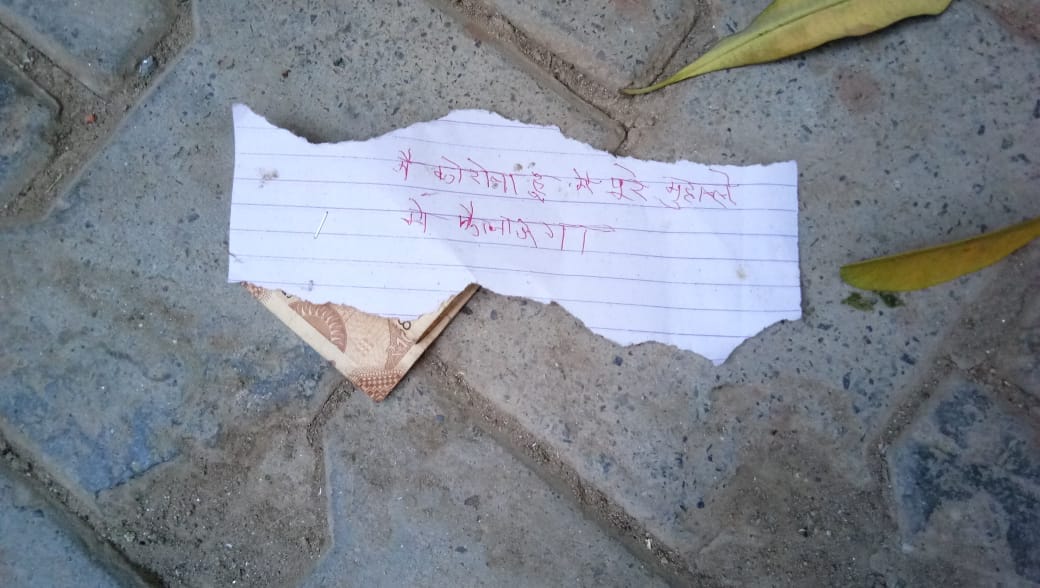 मै कोरोना हू मै पुरे मुहल्ले
मे फैलाऊगा